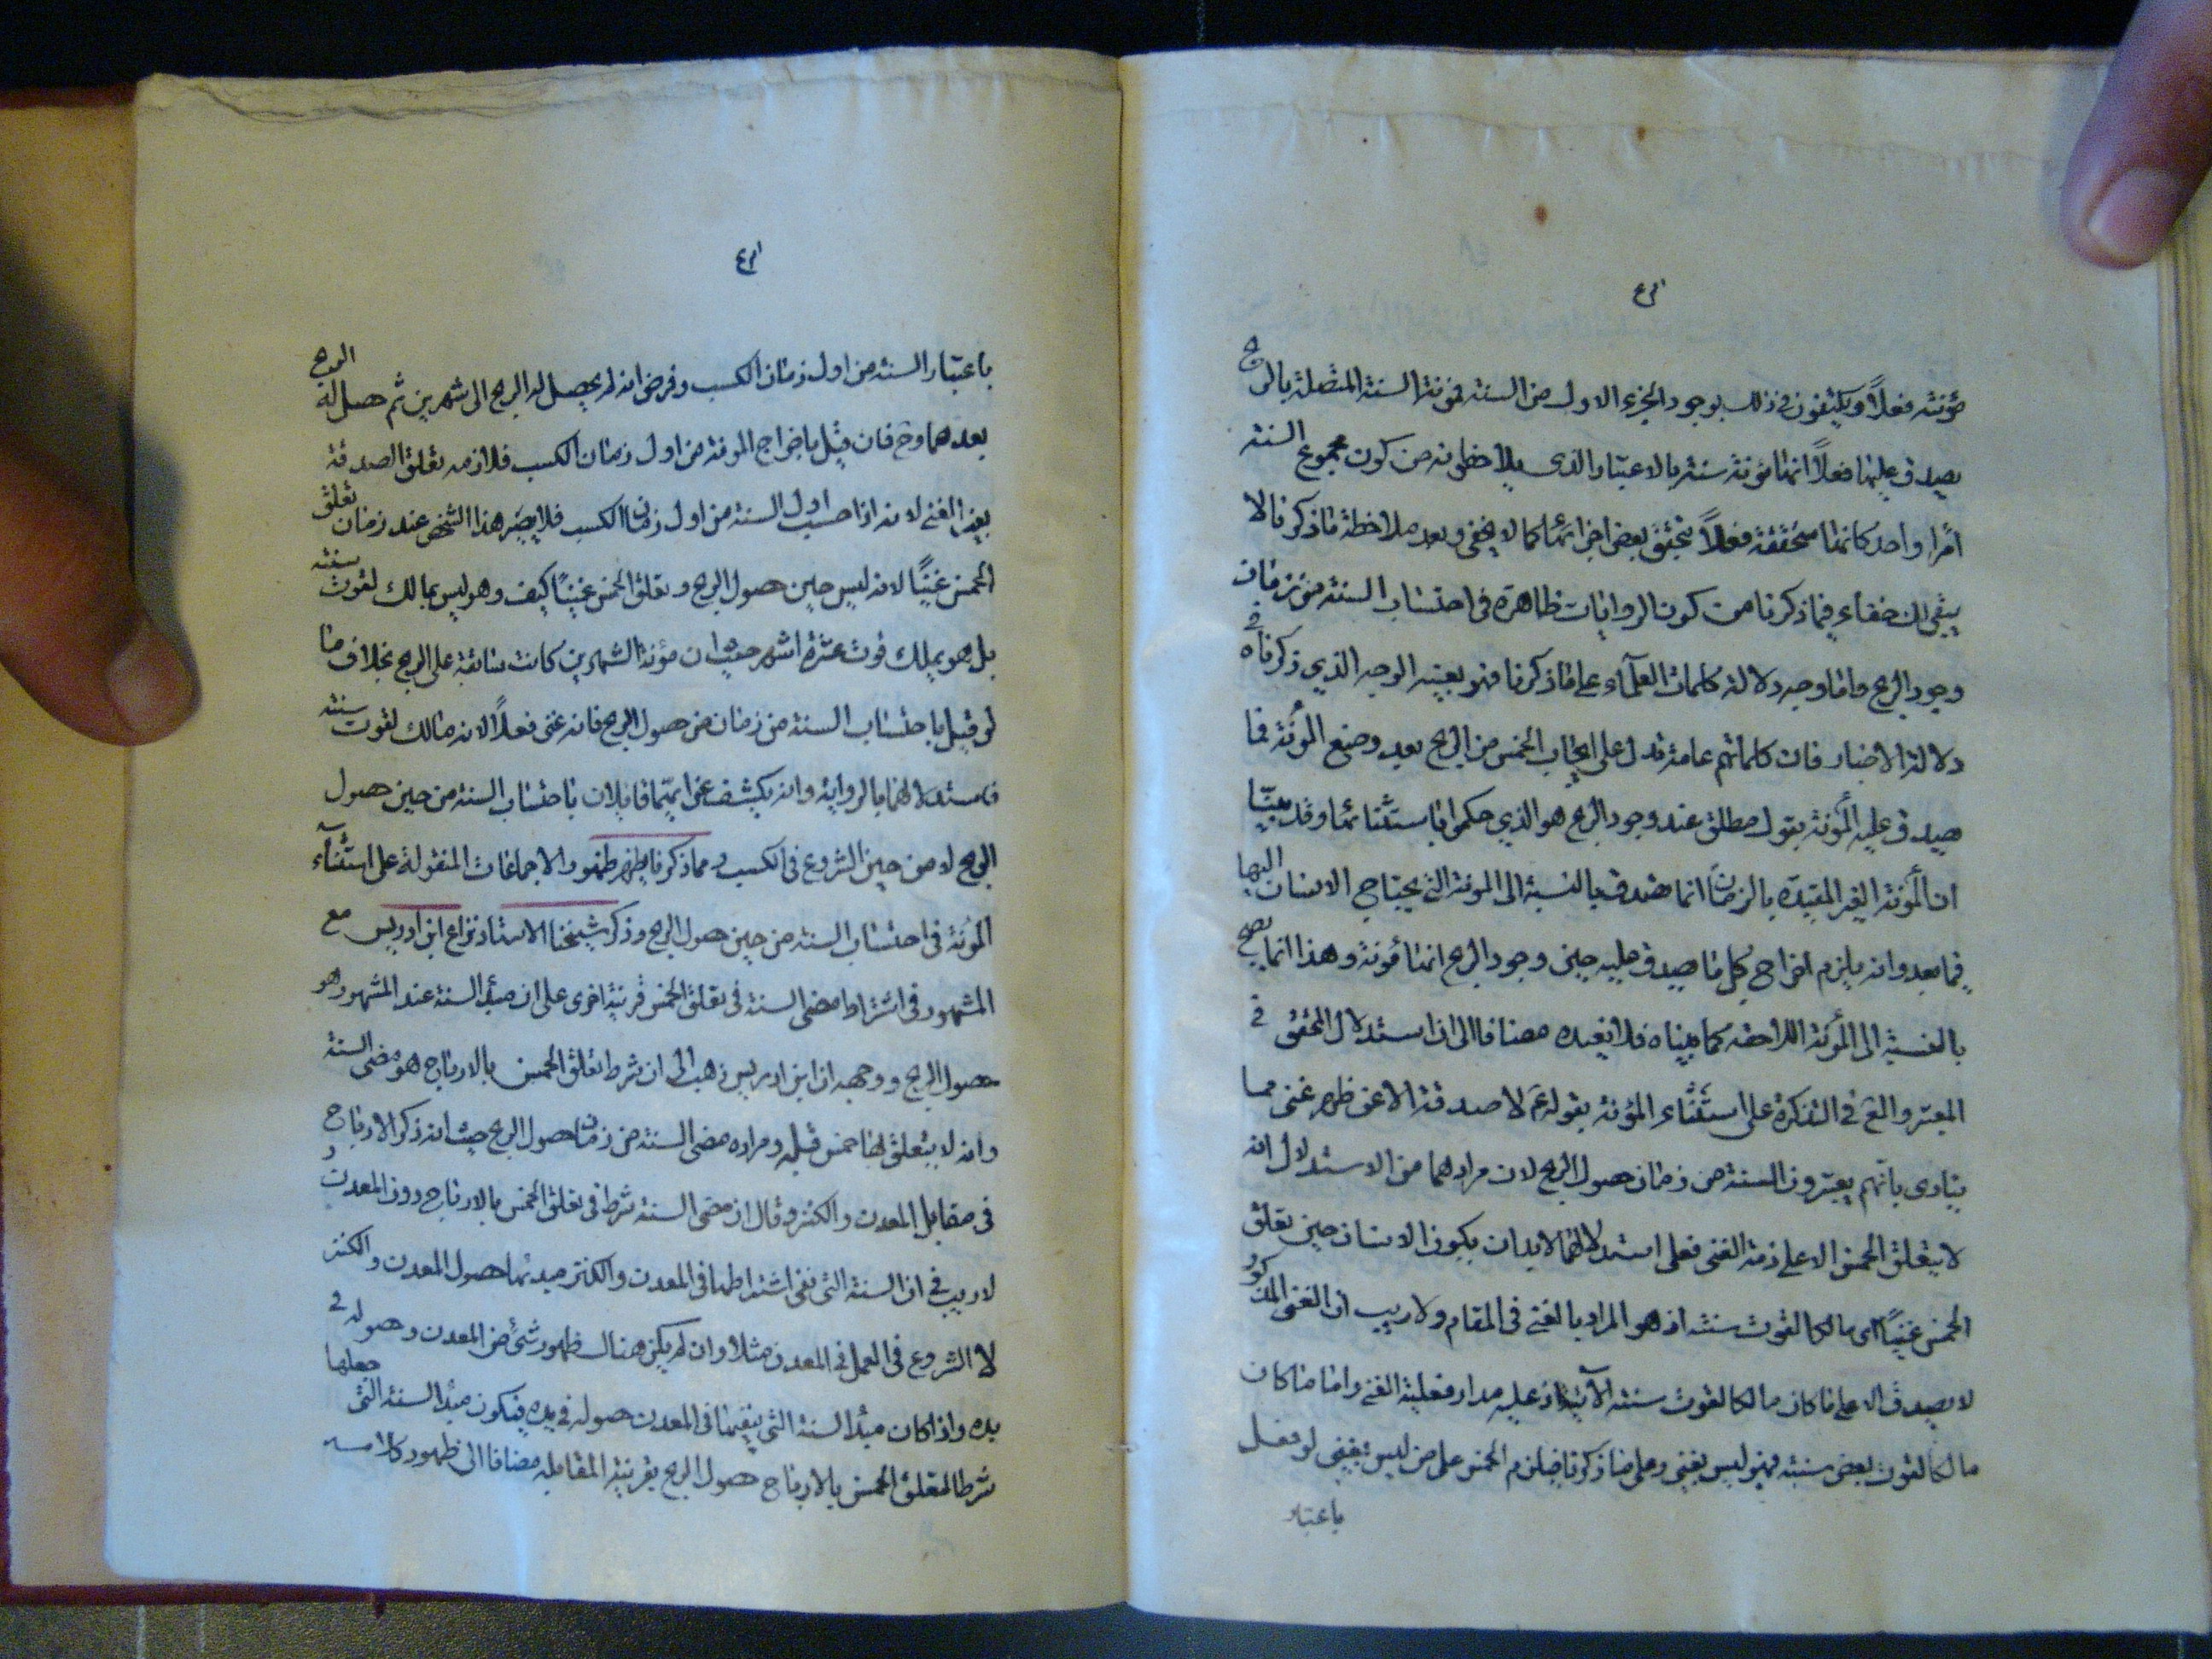 مؤنته فعلاً ويكتفون في ذلك بوجود الجزء الاول من السنة فمؤنة السنة المتصلة بالربح
يصدق عليها فعلاً انها مؤنة سنته بالاعتبار الذي يلاحظ انه من كون مجموع السنة
امرا واحد كانها متحققة فعلاً بتحقق بعض اجزائها كما لا يخفى وبعد ملاحظة ما ذكرنا لا
يبقى لك خفاء فيما ذكرنا من كون الروايات ظاهرة في احتساب السنة من زمان
وجود الربح واما وجه دلالة كلمات العلماء على ما ذكرنا فهو بعينه الوجه الذي ذكرناه في
دلالة الاخبار فان كلماتهم عامة تدل على ايجاب الخمس من الربح بعد وضع المؤنة فما
يصدق عليه المؤنة بقول مطلق عند وجود الربح هو الذي حكموا باستثنائها وقد بينّا
ان المؤنة الغير المقيدة بالزمان انما تصدق بالنسبة الى المؤنة التي يحتاج الانسان اليها
فيما بعد وانه يلزم اخراج كل ما يصدق عليه حين وجود الربح انها مؤنة وهذا انما يصح
بالنسبة الى المؤنة اللاحقة كما بيناه فلا نعيده مضافا الى ان استدلال المحقق في
المعتبر والعلامة في التذكرة على استثناء المؤنة بقوله ع لا صدقة الا عن ظهر غنى مما
ينادي بانهم يعتبرون السنة من زمان حصول الربح لان مرادهما من الاستدلال انه
لا يتعلق الخمس الا على ذمة الغني فعلى استدلالهما لابد ان يكون الانسان حين تعلق
الخمس غنيّاً اى مالكا لقوت سنته اذ هو المراد بالغني في المقام ولا ريب ان الغني المذكور
لا يصدق الا على ما كان مالكا لقوت سنته الآتية اذ عليه مدار فعلية الغنى واما ما كان
مالكا لقوت بعض سنته فهو ليس بغني وعلى ما ذكرنا فيلزم الخمس على من ليس بغني لو فعل
باعتبار
باعتبار السنة من اول زمان الكسب وفرض انه لم يحصل له الربح الى شهرين ثم حصل له الربح
بعدهما وح فان قيل باخراج المؤنة من اول زمان الكسب فلازمه تعلق الصدقة
بغير الغني لانه اذا حسب اول السنة من اول زمان الكسب فلا يصير هذا الشخص عند زمان تعلق
الخمس غنيّاً لانه ليس حين حصول الربح وتعلق الخمس غنيّاً كيف وهو ليس بمالك لقوت سنته
بل هو يملك قوت عشرة اشهر حيث ان مؤنة الشهرين كانت سابقة على الربح بخلاف ما
لو قيل باحتساب السنة من زمان حصول الربح فانه غني فعلاً لانه مالك لقوت سنته
فاستدلالهما بالرواية وانه يكشف عن انهما قايلان باحتساب السنة من حين حصول
الربح لا من حين الشروع في الكسب ومما ذكرنا يظهر ظهور الاجماعات المنقولة على استثناء
المؤنة في احتساب السنة من حين حصول الربح وذكر شيخنا الاستاد نزاع ابن ادريس مع
المشهور في اشتراط مضى السنة في تعلق الخمس قرينة اخرى على ان مبدأ السنة عند المشهور هو
حصول الربح ووجهه ان ابن ادريس ذهب الى ان شرط تعلق الخمس بالارباح هو مضى السنة
وانه لا يتعلق بها خمس قبله ومراده مضى السنة من زمان حصول الربح حيث انه ذكر الارباح
في مقابل المعدن والكنز وقال ان مضى السنة شرط في تعلق الخمس بالارباح دون المعدن و
لا ريب في ان السنة التي نفى اشتراطها في المعدن والكنز مبدئها حصول المعدن والكنز
لا الشروع في العمل في المعدن مثلا وان لم يكن هناك ظهور شئ من المعدن وحصوله في
يده واذا كان مبدأ السنة التي ينفيها في المعدن حصوله في يده فيكون مبدأ السنة التي جعلها
شرطا لتعلق الخمس بالارباح حصول الربح بقرينة المقابلة مضافا الى ظهور كلامه